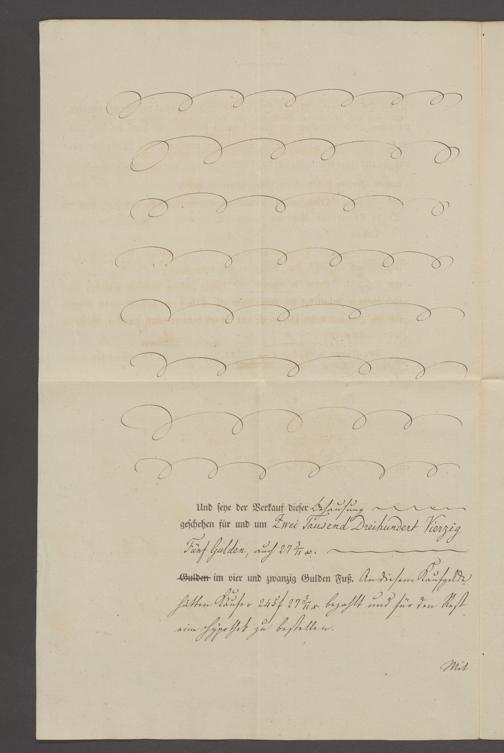 Und seye der Verkauf dieser Behausung
geschehen für und um Zwei Tausend Dreihundert Vierzig
Fünf Gulden, auch 27 3/11 x.
Gulden im vier und zwanzig Gulden Fuß. An diesem Kaufgelde
hätten Käufer 245f 27 3/11 x bezahlt und für den Rest
eine Hypothek zu bestellen.
Mit